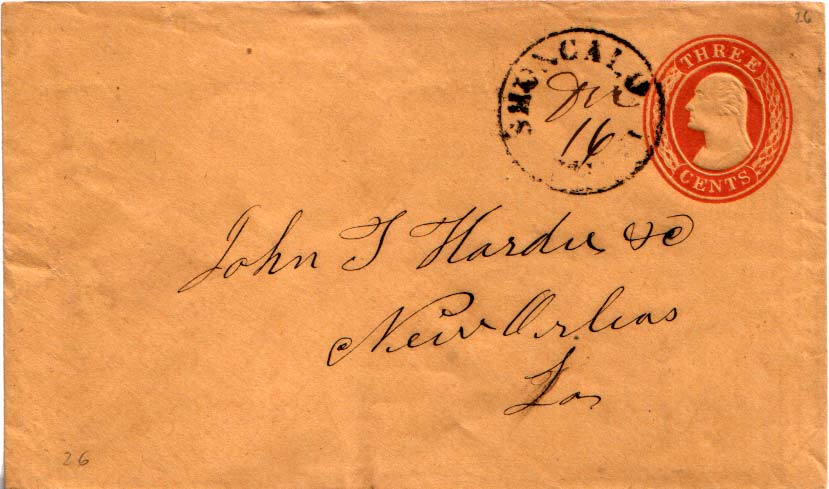 26
SHONGALO
Dec
16
THREE
CENTS
John T Hardie & C
New Orleas
La
26